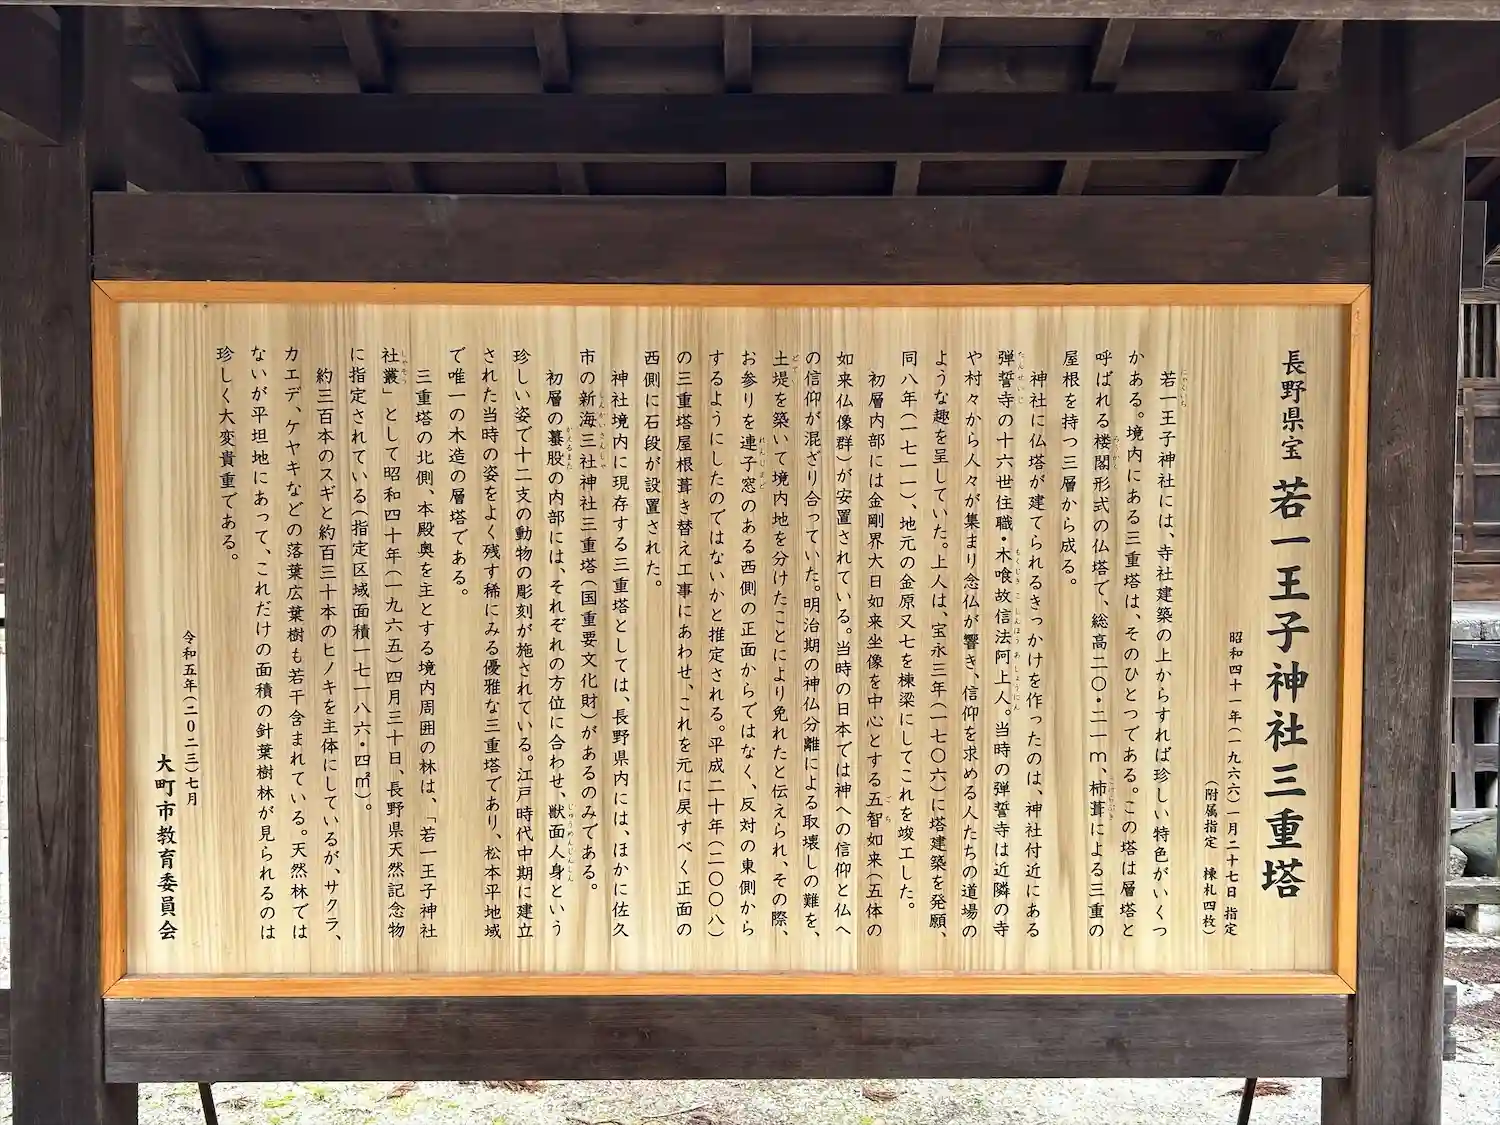 長野県宝 若一王子神社三重塔
昭和四十一年(一九六六)一月二十七日 指定
(附属指定 棟札四枚)
若一王子神社には、寺社建築の上からすれば珍しい特色がいくつ
かある。境内にある三重塔は、そのひとつである。この塔は層塔と
呼ばれる楼閣形式の仏塔で、総高二〇・二一m、杮葺による三重の
屋根を持つ三層から成る。
神社に仏塔が建てられるきっかけを作ったのは、神社付近にある
弾誓寺の十六世住職・木喰故信法阿上人。当時の弾誓寺は近隣の寺
や村々から人々が集まり念仏が響き、信仰を求める人たちの道場の
ような趣を呈していた。上人は、宝永三年(一七〇六)に塔建築を発願、
同八年(一七一一)、地元の金原又七を棟梁にしてこれを竣工した。
初層内部には金剛界大日如来坐像を中心とする五智如来(五体の
如来仏像群)が安置されている。当時の日本では神への信仰と仏へ
の信仰が混ざり合っていた。明治期の神仏分離による取壊しの難を、
土堤を築いて境内地を分けたことにより免れたと伝えられ、その際、
お参りを連子窓のある西側の正面からではなく、反対の東側から
するようにしたのではないかと推定される。平成二十年(二〇〇八)
の三重塔屋根葺き替え工事にあわせ、これを元に戻すべく正面の
西側に石段が設置された。
神社境内に現存する三重塔としては、長野県内には、ほかに佐久
市の新海三社神社三重塔(国重要文化財)があるのみである。
初層の蟇股の内部には、それぞれの方位に合わせ、獣面人身という
珍しい姿で十二支の動物の彫刻が施されている。江戸時代中期に建立
された当時の姿をよく残す稀にみる優雅な三重塔であり、松本平地域
で唯一の木造の層塔である。
三重塔の北側、本殿奥を主とする境内周囲の林は、「若一王子神社
社叢」として昭和四十年(一九六五)四月三十日、長野県天然記念物
に指定されている(指定区域面積一七一八六・四㎡)。
約三百本のスギと約百三十本のヒノキを主体にしているが、サクラ、
カエデ、ケヤキなどの落葉広葉樹も若干含まれている。天然林では
ないが平坦地にあって、これだけの面積の針葉樹林が見られるのは
珍しく大変貴重である。
令和五年(二〇二三)七月
大町市教育委員会